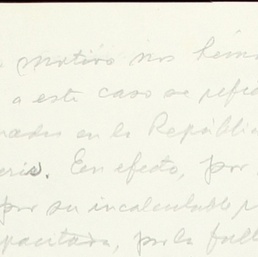 motivo nos hem
a este caso se refie
nados en la Repúbli
eris. En efecto, por
por su incalculable
pautada, por la fall